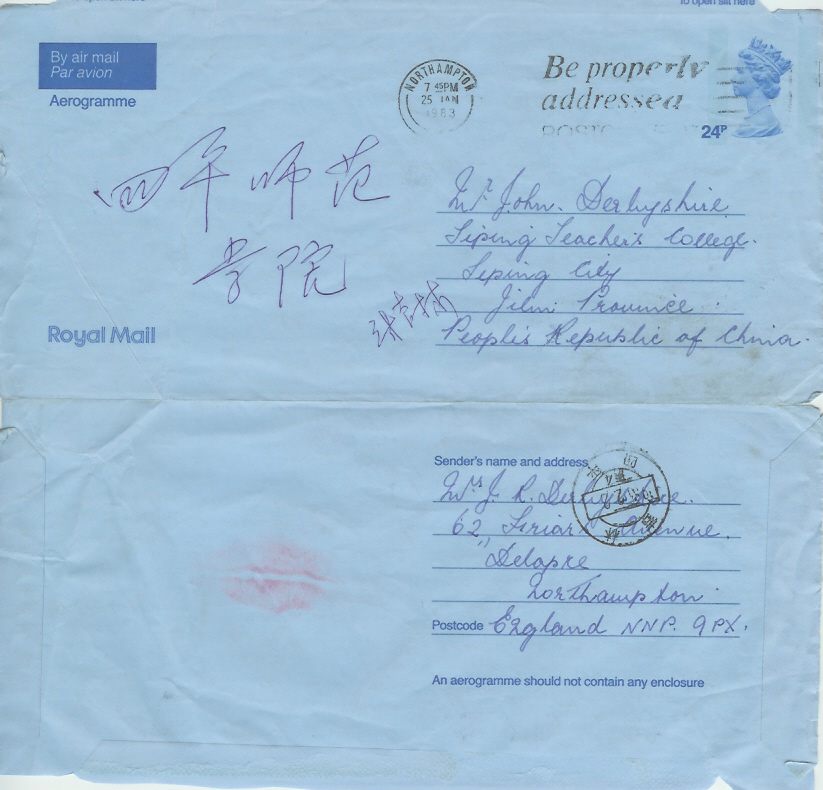 To open slit here
By air mail
Par avion
Aerogramme
NORTHAMPTON
7 45PM
25 JAN
1983
Be properly
addressed
24P
四平师范
学院
Mr. John. Derbyshire.
Siping Teacher's College.
Siping City
Jilin Province
People's Republic of China.
Royal Mail
Sender's name and address
Mrs J. R. Derbyshire.
62, Friars Avenue.
Delapre
Northampton.
Postcode England NNP. 9PX.
An aerogramme should not contain any enclosure